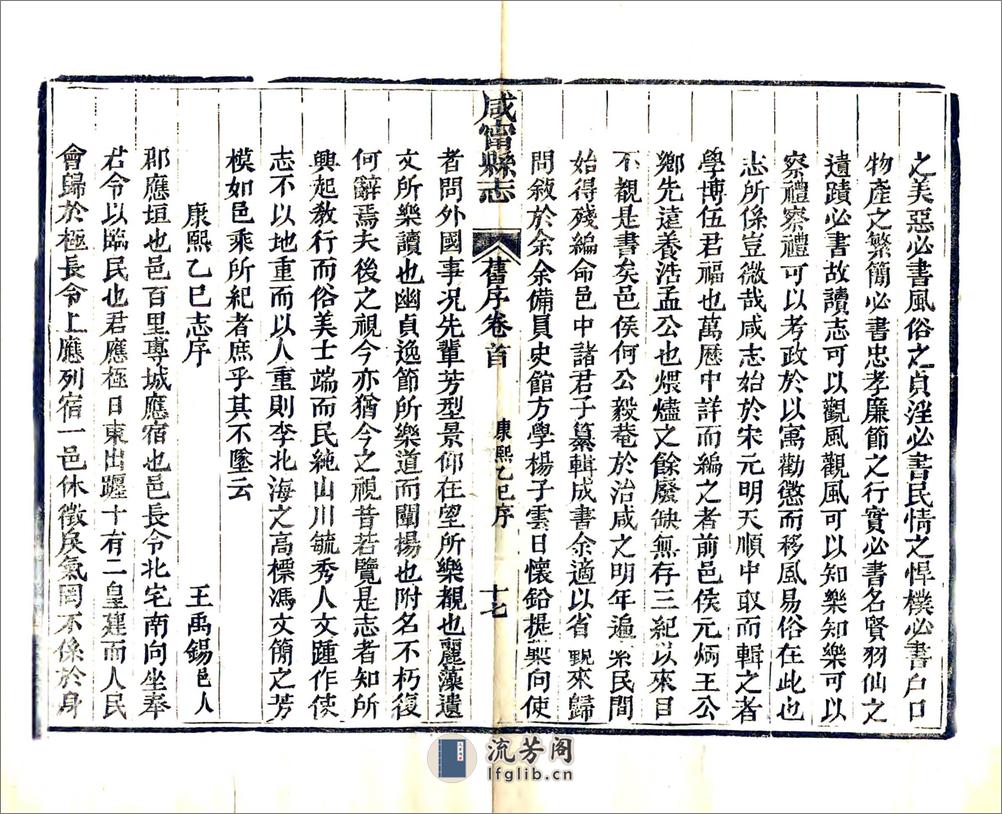 之美惡必書風俗之貞淫必書民情之悍樸必書戶口
物產之繁簡必書忠孝廉節之行實必書名賢羽仙之
遺蹟必書故讀志可以觀風觀風可以知樂知樂可以
察禮察禮可以考政於以寓勸懲而移風易俗在此也
志所係豈微哉咸志始於宋元明天順中取而輯之者
學博伍君福也萬歷中詳而編之者前邑侯元炳王公
鄉先達養浩孟公也煨燼之餘廢缺無存三紀以來目
不覩是書矣邑侯何公毅菴於治咸之明年遍索民間
始得殘編命邑中諸君子纂輯成書余適以省覲來歸
問敘於余余備員史館方學楊子雲日懷鉛提槧向使
咸寧縣志
舊序卷首
康熙乙巳序
十七
者問外國事况先輩芳型景仰在望所樂覩也麗藻遺
文所樂讀也幽貞逸節所樂道而闡揚也附名不朽復
何辭焉夫後之視今亦猶今之視昔若覽是志者知所
興起敎行而俗美士端而民純山川毓秀人文踵作使
志不以地重而以人重則李北海之高標馮文簡之芳
模如邑乘所紀者庶乎其不墜云
康熙乙巳志序
王禹錫邑人
郡應垣也邑百里專城應宿也邑長令北宅南向坐奉
君令以臨民也君應極日東出躔十有二皇建而人民
會歸於極長令上應列宿一邑休徵戾氣罔不係於身
流芳阁
lfglib.cn